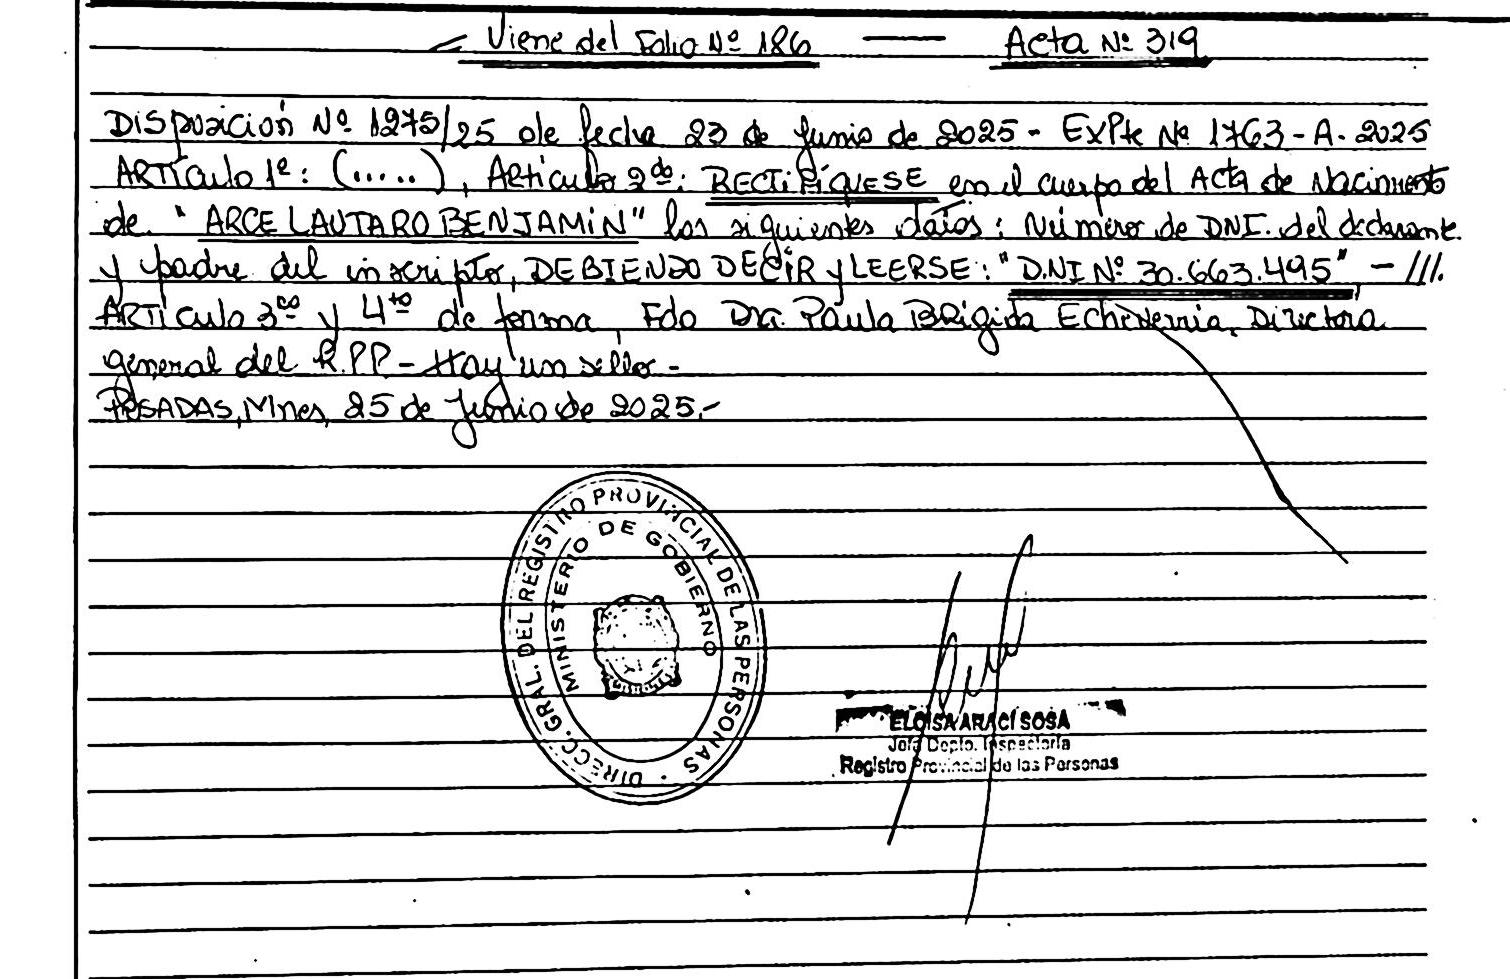 Viene del Folio Nº 186 — Acta Nº 319
Disposición Nº 1275/25 de fecha 23 de Junio de 2025 - EXPte Nº 1763-A-2025
ARTículo 1º: (.....), Artículo 2do: RECTIFIQUESE en el cuerpo del Acta de Nacimiento
de "ARCE LAUTARO BENJAMIN" los siguientes datos: Número de DNI. del declarante
y padre del inscripto, DEBIENDO DECIR y LEERSE: "D.NI Nº 30.663.495" - ///.
ARTículo 3ro y 4to de forma, Fdo Dra. Paula BRigida Echeverria, Directora
general del R.P.P. - Hay un sello -
POSADAS, Mnes, 25 de Junio de 2025.-
DIRECC. GRAL. DEL REGISTRO PROVINCIAL DE LAS PERSONAS
MINISTERIO DE GOBIERNO
ELOISA ARACÍ SOSA
Jefa Depto. Inspectoría
Registro Provincial de las Personas